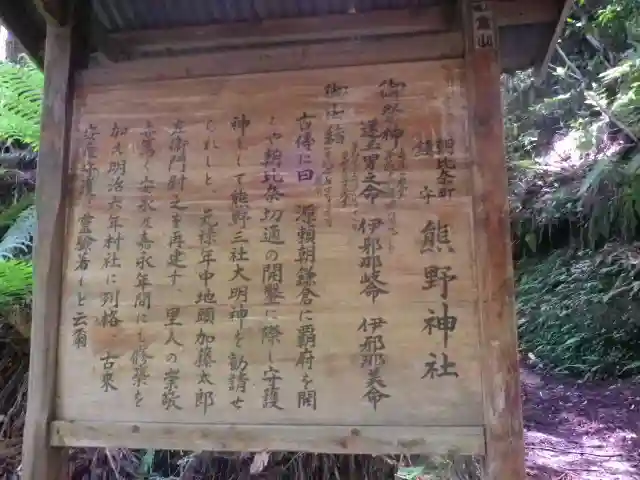 朝比奈町
鎮守
熊野神社
御祭神
速玉男之命 伊邪那岐命 伊邪那美命
御由緒
古傳に曰 源頼朝鎌倉に覇府を開
くや朝比奈切通の開鑿に際し守護
神として熊野三社大明神を勧請せ
られしと、元禄年中地頭加藤太郎
左衛門尉之を再建す 里人の崇敬
亦篤く安永及嘉永年間にも修築を
加え明治六年村社に列格、古来
安産守護に霊験著しと云爾